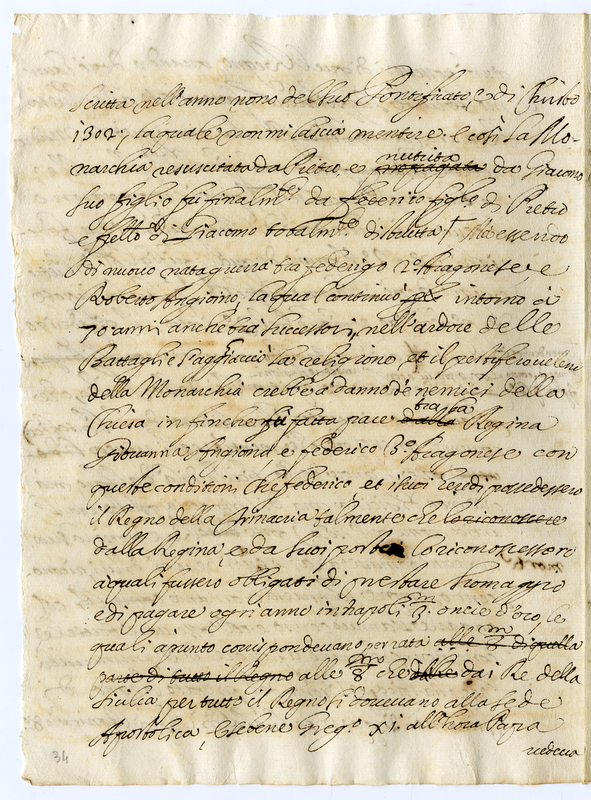 scritta nell'anno nono del suo Pontificato, e di Christo
1302. la quale non mi lascia mentire. e così la Mo-
narchia resuscitata da Pietro e propagata nutrita da Giacomo
suo figlio fù finalm.te da Federico figlo di Pietro
e frello di Giacomo totalm.te distrutta. Ma essendo
di nuovo nata guerra tra federigo 2.o Aragonese, e
Roberto Angioino, la qual continuò per intorno à
70 anni anche trà successori, nell'ardore delle
Battaglie s'agghiacciò la religione et il pestifero veleno
della Monarchia crebbe à danno de nemici della
Chiesa in finche fù fatta pace dalla tra la Regina
Giovanna Angioina e federico 3.o Aragonese con
queste conditioni che federico, et i suoi heredi possedessero
il Regno della Trinacria talmente che lo riconoscere
dalla Regina, e da suoi posteri lo riconoscessero
a quali fussero obligati di prestare homaggio
e di pagare ogni anno in napoli 3 m oncie d'oro, le
quali apunto corrispondevano per rata alle 8 m di quella
parte di tutto il Regno alle 8 m che dalli dai Re della
Sicilia per tutto il Regno si dovevano alla sede
Apostolica, e sebene Greg.o XI. all'hora Papa
vedeva
34